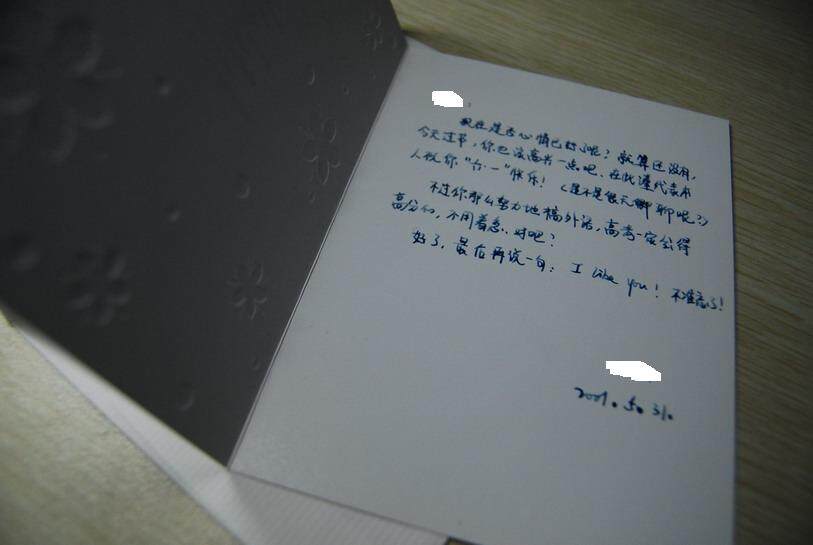 :
现在是否心情已好了呢？就算还没有，
今天过节，你也该高兴一点吧，在此谨代表本
人祝你“六·一”快乐！（是不是很无聊聊呢？）
不过你那么努力地搞外语，高考一定会得
高分的，不用着急，对吧？
好了，最后再说一句：I like you！不准忘了！
2001.5.31.